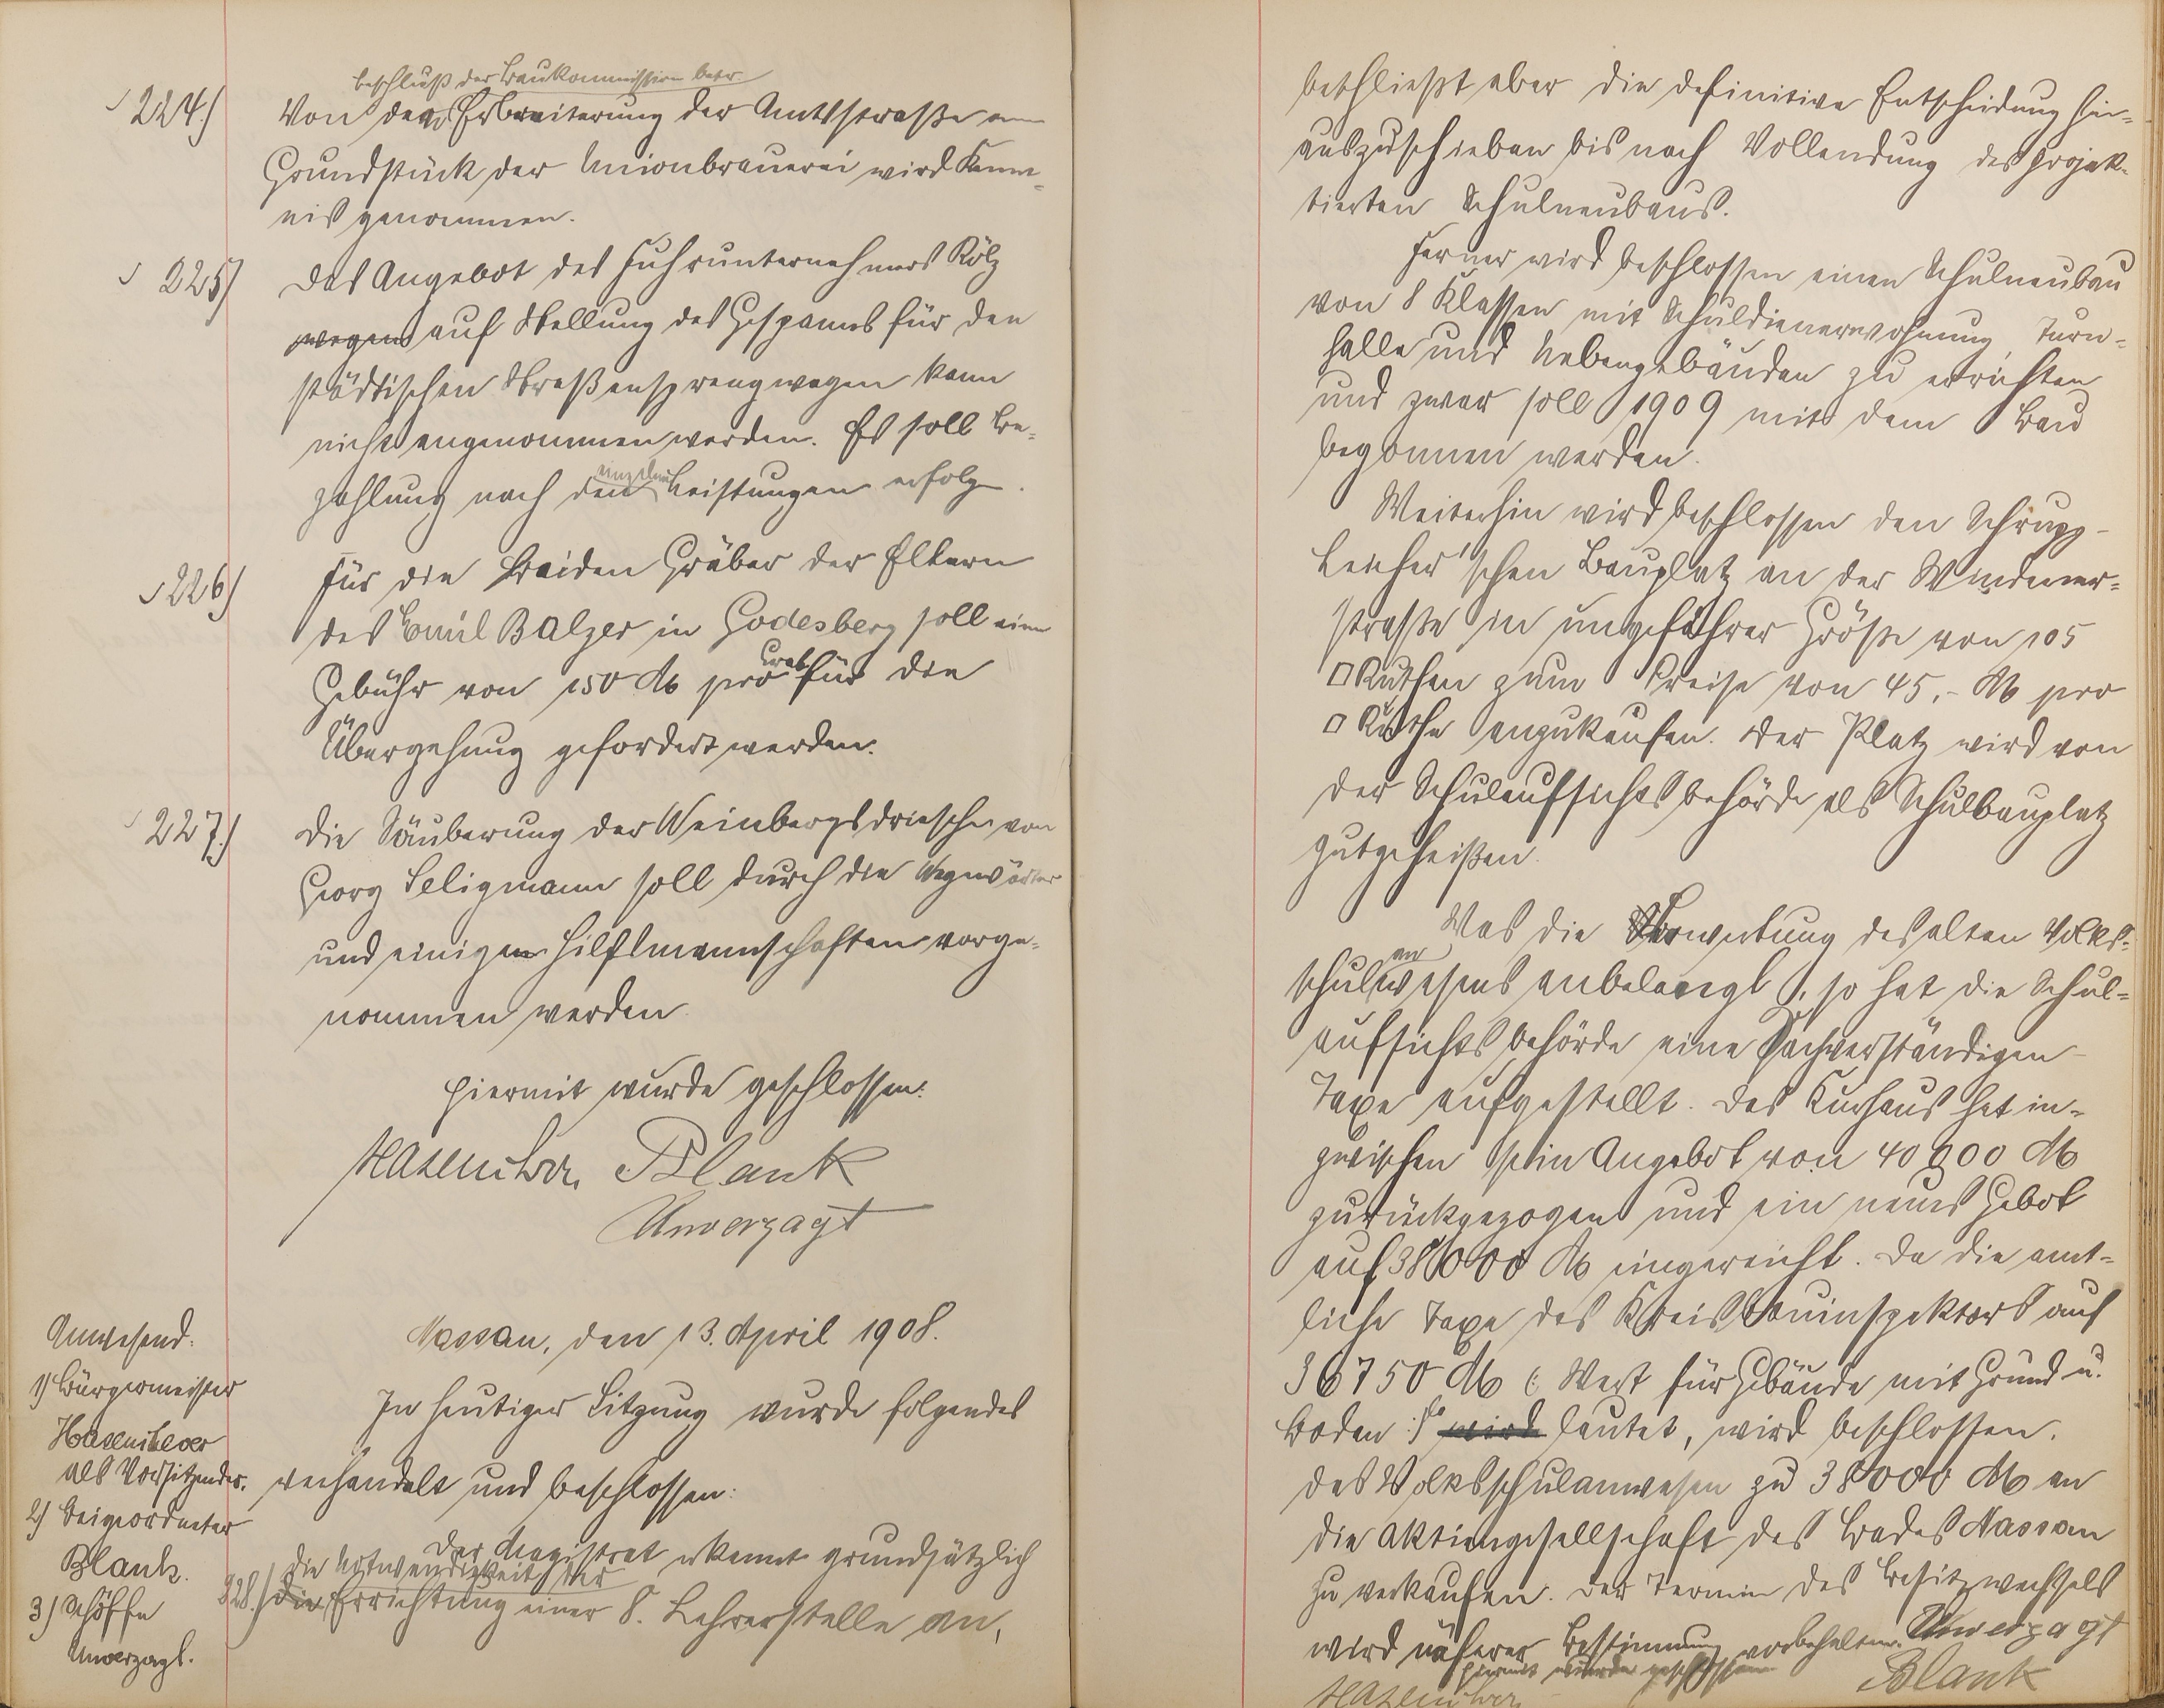 224.)
Beschluß der Baukommission betr.
Von der Erbreiterung der Amtsstraße am
Grundstück der Unionbrauerei wird Kennt-
nis genommen.
225)
Das Angebot des Fuhrunternehmers Kölz
wegen auf Stellung des Gespanns für den
städtischen Straßensprengwagen kann
nicht angenommen werden. Es soll Be-
zahlung nach den einzelnen Leistungen erfolgen.
226)
Für die beiden Gräber der Eltern
des Emil Balzer in Godesberg soll eine
Gebühr von 150 M pro Grab für die
Übergehung gefordert werden.
227.)
Die Säuberung der Weinbergsdriesche von
Georg Seligmann soll durch die Wegwärter
und einigen Hilfsmannschaften vorge-
nommen werden.
Hiermit wurde geschlossen:
Hasenclever. Blank
Unverzagt
Nassau, den 13. April 1908.
Anwesend:
1) Bürgermeister
Hasenclever
als Vorsitzender.
2) Beigeordneter
Blank.
3) Schöffe
Unverzagt.
In heutiger Sitzung wurde folgendes
verhandelt und beschlossen:
Der Magistrat erkennt grundsätzlich
die Notwendigkeit der
228.) die Errichtung einer 8. Lehrerstelle an,
beschließt aber die definitive Entscheidung hin-
auszuschieben bis nach Vollendung des projek-
tierten Schulneubaus.
Ferner wird beschlossen einen Schulneubau
von 8 Klassen mit Schuldienerwohnung, Turn-
halle und Nebengebäuden zu errichten
und zwar soll 1909 mit dem Bau
begonnen werden.
Weiterhin wird beschlossen den Schrupp-
Leicher'schen Bauplatz an der Windener-
straße in ungefährer Größe von 105
□ Ruthen zum Preise von 45.- M pro
□ Ruthe anzukaufen. Der Platz wird von
der Schulaufsichtsbehörde als Schulbauplatz
gutgeheißen.
Was die Verwertung des alten Volks-
schulanwesens anbelangt, so hat die Schul-
aufsichtsbehörde eine Sachverständigen-
Taxe aufgestellt. Das Kurhaus hat in-
zwischen sein Angebot von 40 000 M
zurückgezogen und ein neues Gebot
auf 38000 M eingereicht. Da die amt-
liche Taxe des Kreisbauinspektors auf
36750 M (: Wert für Gebäude mit Grund u.
Boden :) wird lautet, wird beschlossen.
das Volksschulanwesen zu 38000 M an
die Aktiengesellschaft des Bades Nassau
zu verkaufen. Der Termin des Besitzwechsels
wird näherer Bestimmung vorbehalten. Unverzagt
Hiermit wurde geschlossen
Hasenclever Blank